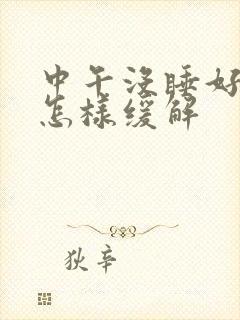 中午没睡好
怎样缓解
狄辛